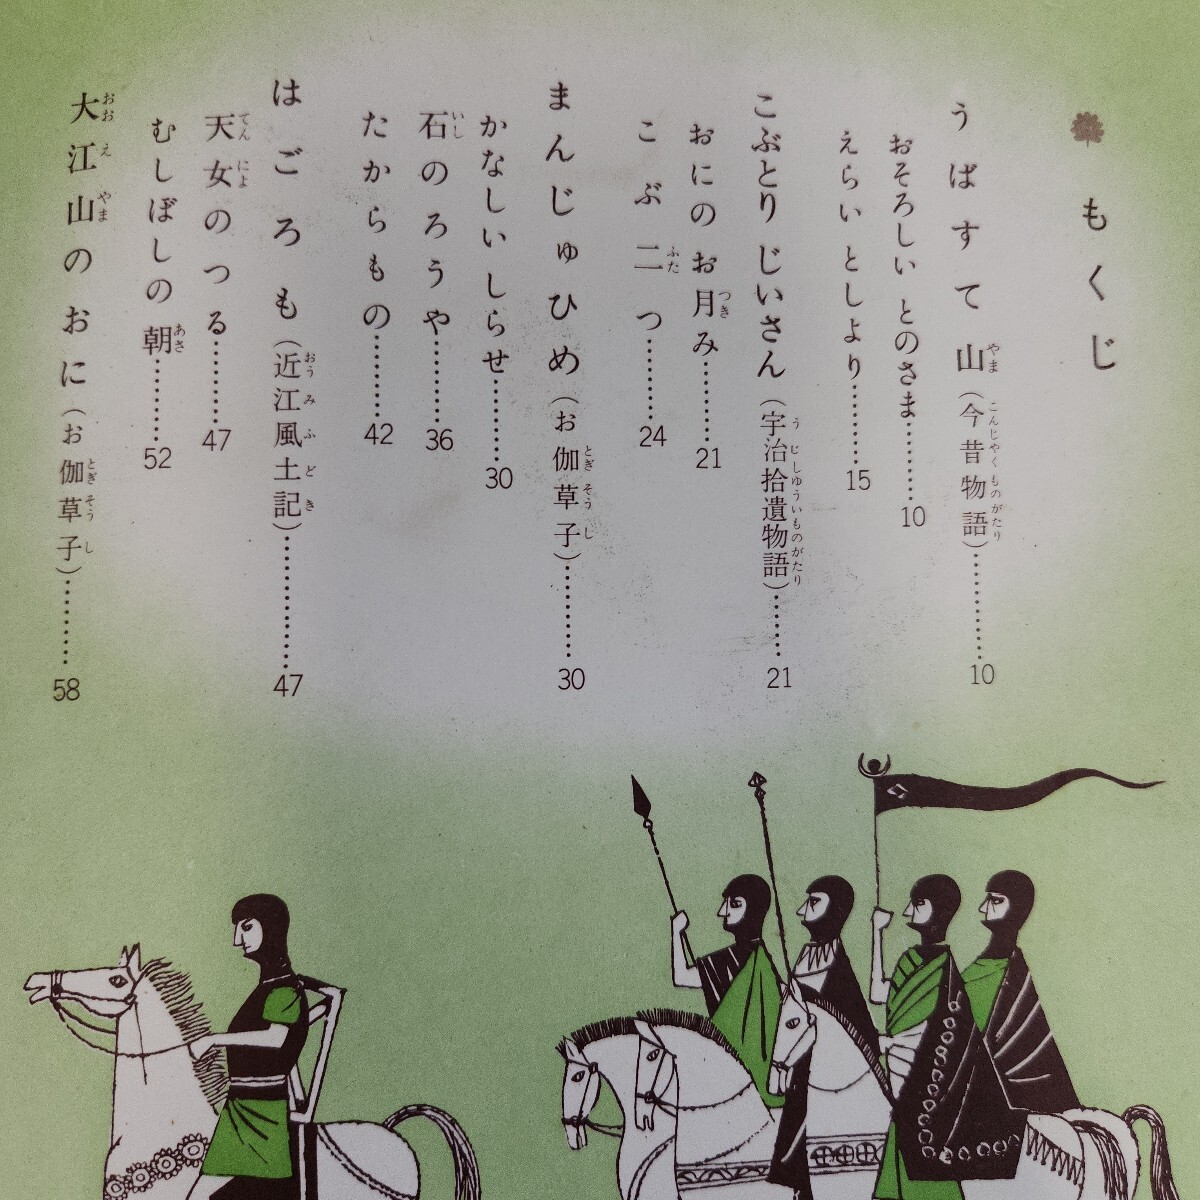 もくじ
うばすて山（今昔物語）…………10
おそろしい とのさま…………10
えらい としより…………15
こぶとり じいさん（宇治拾遺物語）…………21
おにのお月み…………21
こぶ二つ…………24
まんじゅひめ（お伽草子）…………30
かなしいしらせ…………30
石のろうや…………36
たからもの…………42
はごろも（近江風土記）…………47
天女のつる…………47
むしぼしの朝…………52
大江山のおに（お伽草子）…………58